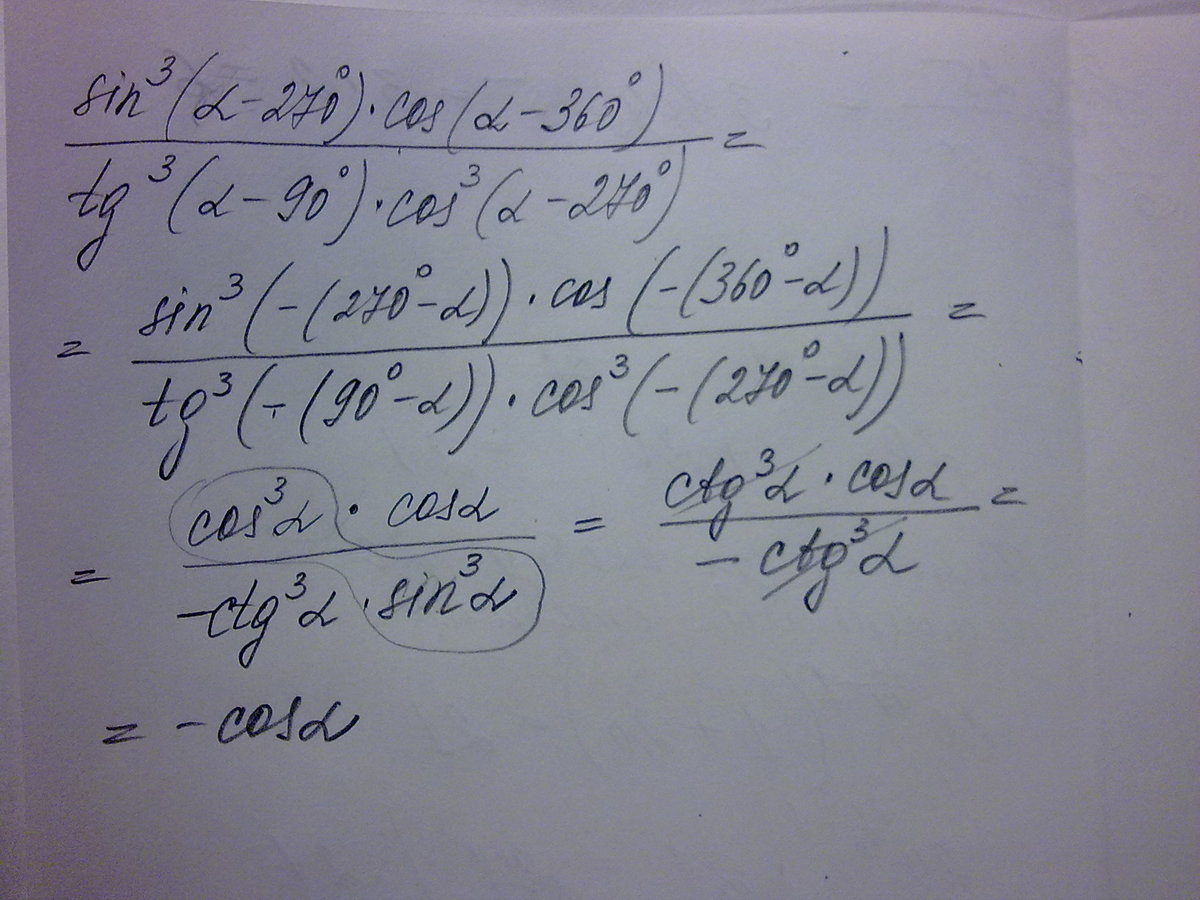 sin³(α-270°)·cos(α-360°) =
tg³(α-90°)·cos³(α-270°)
= sin³(-(270°-α))·cos(-(360°-α)) =
tg³(-(90°-α))·cos³(-(270°-α))
= cos³α · cosα = ctg³α · cosα =
-ctg³α · sin³α - ctg³α
= - cosα